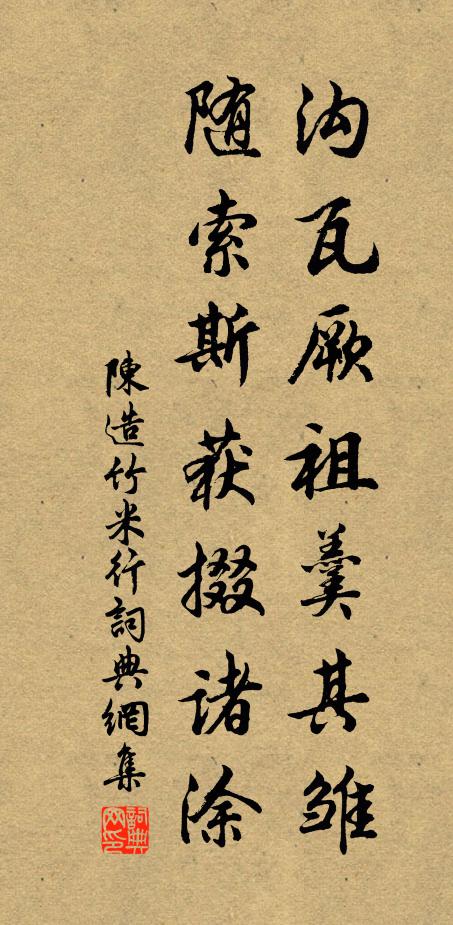 沟瓦厥祖羹其雏
随索斯获掇诸涂
陳造竹米行詞典網集
詞典网印